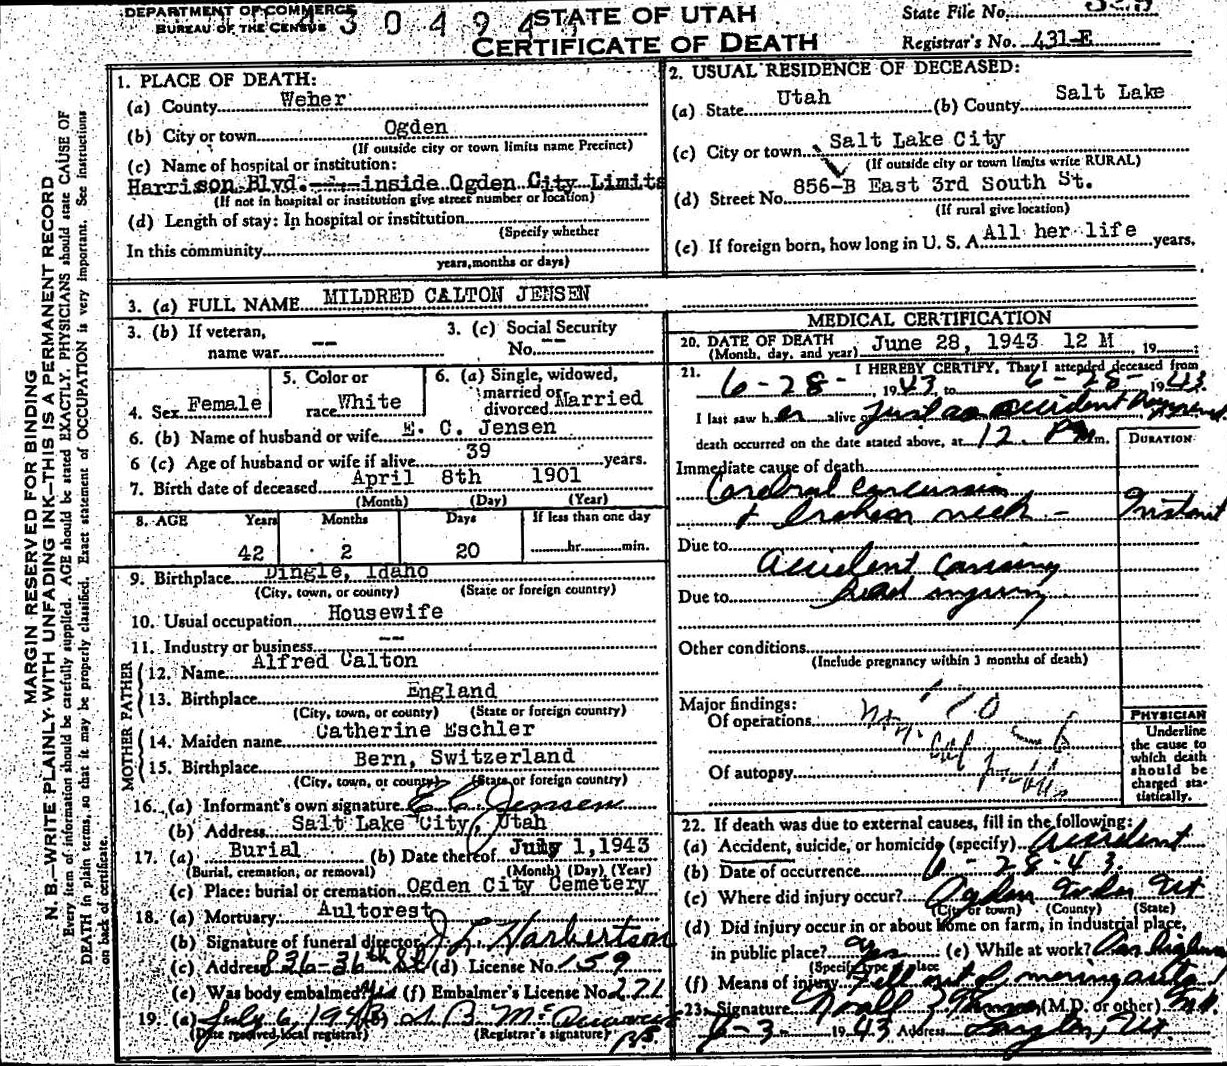 DEPARTMENT OF COMMERCE
BUREAU OF THE CENSUS
4 3 0 4 9 4
STATE OF UTAH
CERTIFICATE OF DEATH
State File No.
Registrar's No. 431-E
MARGIN RESERVED FOR BINDING
N. B.—WRITE PLAINLY WITH UNFADING INK—THIS IS A PERMANENT RECORD
Every item of information should be carefully supplied. AGE should be stated EXACTLY. PHYSICIANS should state CAUSE OF
DEATH in plain terms, so that it may be properly classified. Exact statement of OCCUPATION is very important. See instructions
on back of certificate.
1. PLACE OF DEATH:
(a) County Weber
(b) City or town Ogden
(If outside city or town limits name Precinct)
(c) Name of hospital or institution:
Harrison Blvd. --- inside Ogden City Limits
(If not in hospital or institution give street number or location)
(d) Length of stay: In hospital or institution
(Specify whether
In this community
years, months or days)
2. USUAL RESIDENCE OF DECEASED:
(a) State Utah (b) County Salt Lake
(c) City or town Salt Lake City
(If outside city or town limits write RURAL)
(d) Street No. 856-B East 3rd South St.
(If rural give location)
(e) If foreign born, how long in U. S. A. All her life years.
3. (a) FULL NAME MILDRED CALTON JENSEN
3. (b) If veteran, name war -- 3. (c) Social Security No. --
4. Sex Female 5. Color or race White 6. (a) Single, widowed, married or divorced Married
6. (b) Name of husband or wife E. C. Jensen
6 (c) Age of husband or wife if alive 39 years.
7. Birth date of deceased April 8th 1901
(Month) (Day) (Year)
8. AGE Years Months Days If less than one day
42 2 20 hr. min.
9. Birthplace Dingle, Idaho
(City, town, or county) (State or foreign country)
10. Usual occupation Housewife
11. Industry or business --
FATHER
12. Name Alfred Calton
13. Birthplace England
(City, town, or county) (State or foreign country)
MOTHER
14. Maiden name Catherine Eschler
15. Birthplace Bern, Switzerland
(City, town, or county) (State or foreign country)
16. (a) Informant's own signature E C Jensen
(b) Address Salt Lake City, Utah
17. (a) Burial (b) Date thereof July 1, 1943
(Burial, cremation, or removal) (Month) (Day) (Year)
(c) Place: burial or cremation Ogden City Cemetery
18. (a) Mortuary Aultorest
(b) Signature of funeral director J. L. Harbertson
(c) Address 836-36th St (d) License No. 159
(e) Was body embalmed? Yes (f) Embalmer's License No. 271
19. (a) July 6, 1943 (b)
(Date received local registrar) (Registrar's signature)
MEDICAL CERTIFICATION
20. DATE OF DEATH June 28, 1943 12 M, 19
(Month, day, and year)
21. I HEREBY CERTIFY, That I attended deceased from
6-28- 1943, to 6-28- 1943
I last saw her alive on just as accident happened
death occurred on the date stated above, at 12 P m. DURATION
Immediate cause of death
Cerebral concussion
+ broken neck - Instant
Due to accident causing
Due to head injury
Other conditions
(Include pregnancy within 3 months of death)
Major findings:
Of operations
Of autopsy
PHYSICIAN
Underline the cause to which death should be charged statistically.
22. If death was due to external causes, fill in the following:
(a) Accident, suicide, or homicide (specify) Accident
(b) Date of occurrence 6-28-43.
(c) Where did injury occur? Ogden Weber Ut
(City or town) (County) (State)
(d) Did injury occur in or about home on farm, in industrial place,
in public place? yes (e) While at work?
(Specify type of place)
(f) Means of injury Fell out of moving auto
23. Signature (M.D. or other) M.D.
6-3- 1943 Address Ut